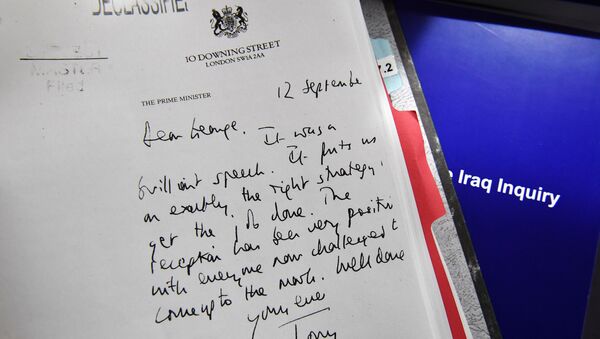 DECLASSIFIED
10 DOWNING STREET
LONDON SW1A 2AA
THE PRIME MINISTER
12 September
Dear George,
It was a
brilliant speech. It puts us
on exactly the right strategy to
get the job done. The
reception has been very positive
with everyone now challenged to
come up to the mark. Well done
Yours ever
Tony
7.2
Iraq Inquiry